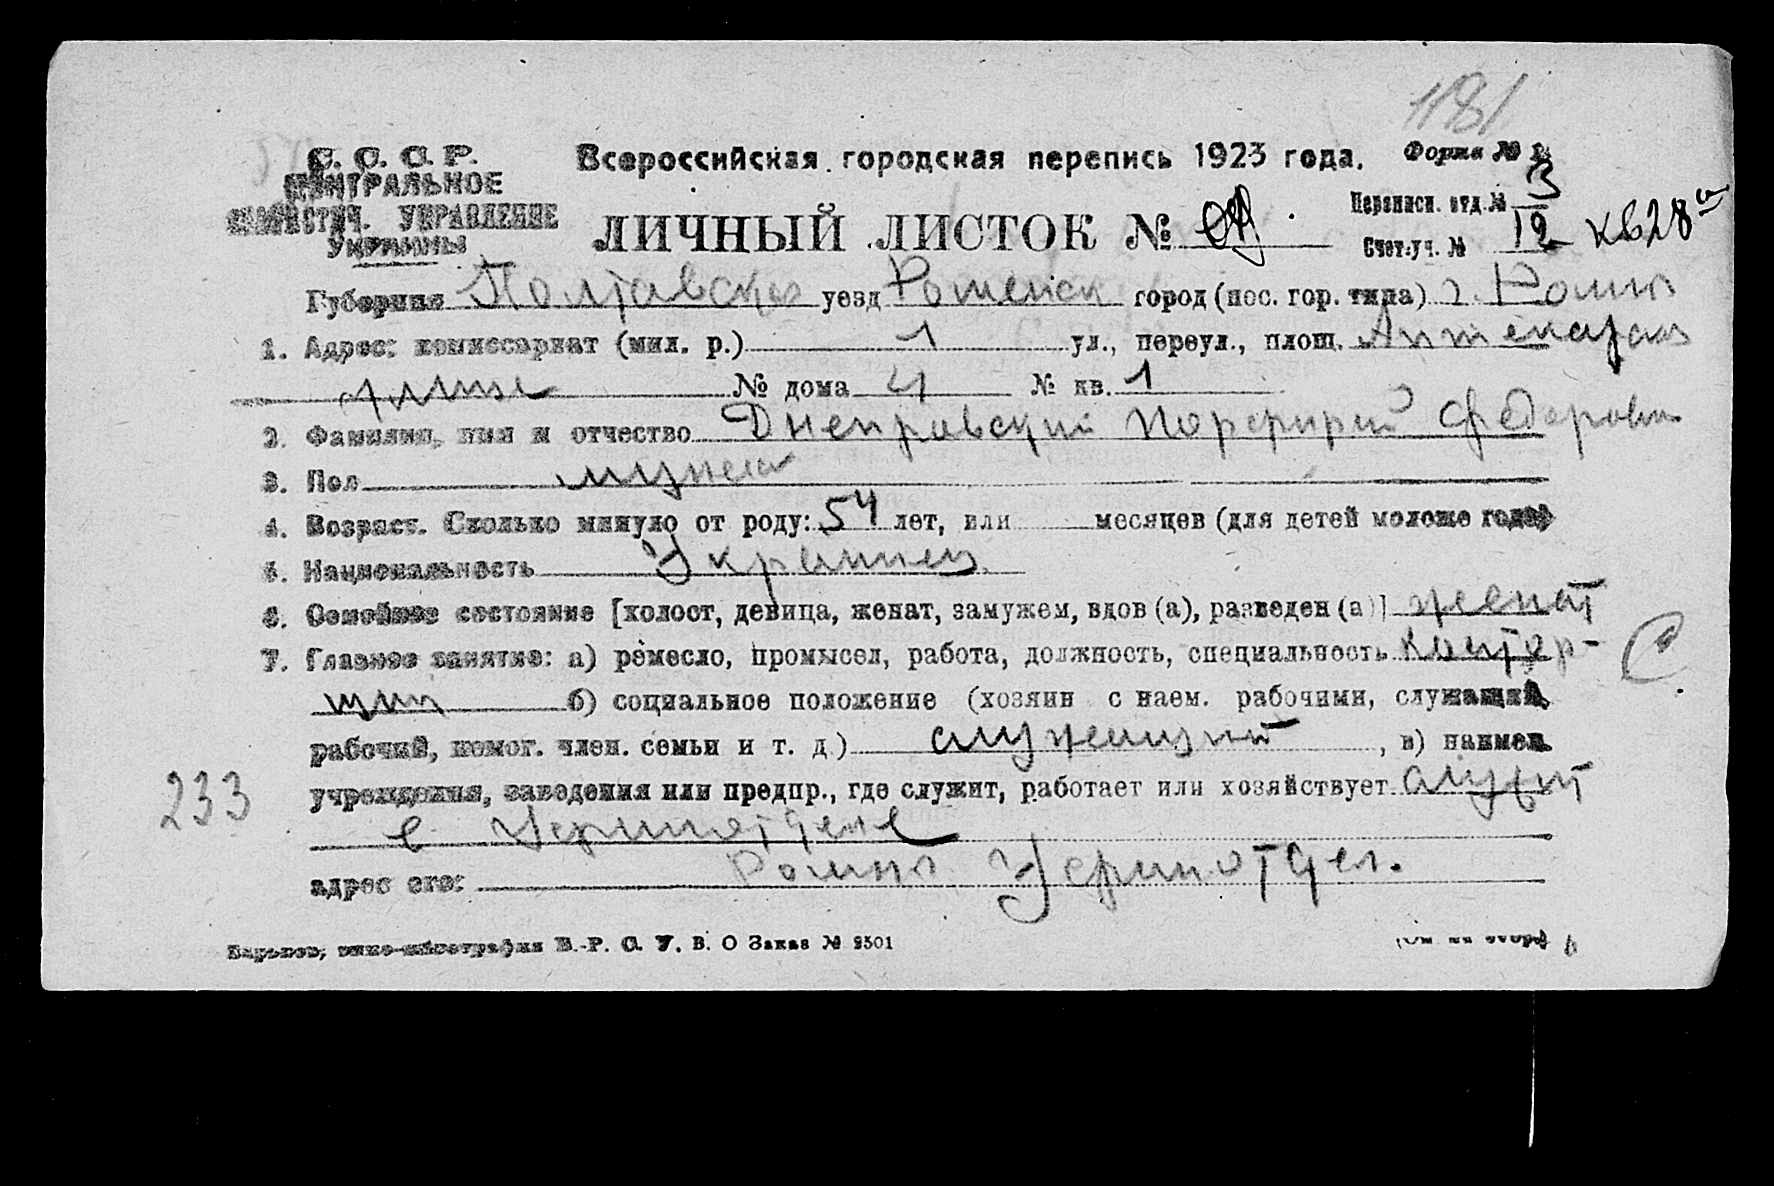 1181
С. С. С. Р. Всероссийская городская перепись 1923 года. Форма №
ЦЕНТРАЛЬНОЕ
СТАТИСТИЧ. УПРАВЛЕНИЕ
УКРАИНЫ
Переписн. отд. № 3
ЛИЧНЫЙ ЛИСТОК №
Счет.-уч. № 12 кв 28
Губерния Полтавская уезд Роменск город (пос. гор. типа) г. Ромны
1. Адрес: комиссариат (мил. р.) 1 ул., переул., площ. Аптекарская
улица № дома 4 № кв. 1
2. Фамилия, имя и отчество Днепровский Порфирий Федорович
3. Пол мужской
4. Возраст. Сколько минуло от роду: 54 лет, или месяцев (для детей моложе года)
5. Национальность Украинец
6. Семейное состояние [холост, девица, женат, замужем, вдов (а), разведен (а)] женат
7. Главное занятие: а) ремесло, промысел, работа, должность, специальность контор-
щик б) социальное положение (хозяин с наем. рабочими, служащий,
рабочий, помог. член. семьи и т. д.) служащий, в) наимен.
233
учреждения, заведения или предпр., где служит, работает или хозяйствует служит
в
адрес его: Ромны
Харьков, типо-литография В. О Заказ № 2501